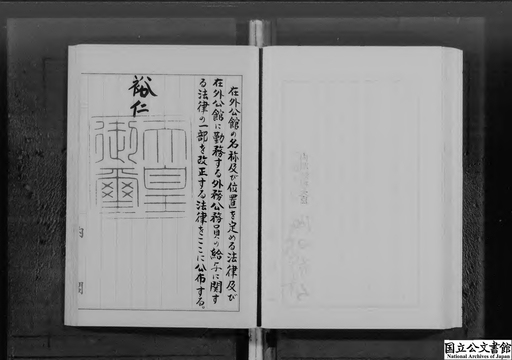 在外公館の名称及び位置を定める法律及び
在外公館に勤務する外務公務員の給与に関す
る法律の一部を改正する法律をここに公布する。
裕仁
天皇
御璽
国立公文書館
National Archives of Japan